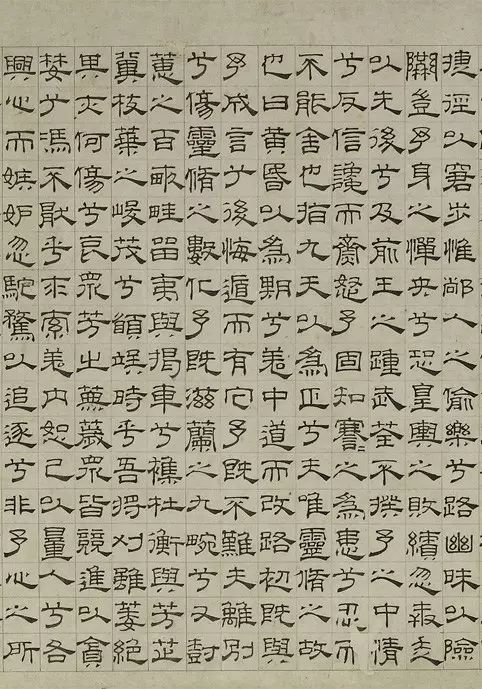 捷徑以窘步惟人之偷樂兮路幽昧以險
隘豈予身之憚央兮恐皇輿之敗績忽犇走
以先後兮及前王之踵武荃不揆予之中情
兮反信讒而齋怒予固知謇〻之為患兮忍而
不能舍也指九天以為正兮夫唯靈脩之故
也曰黃昏以為期兮羌中道而改路初既與
予成言兮後悔遁而有它予既不難夫離別
兮傷靈脩之數化予既滋蘭之九畹兮又樹
蕙之百畝畦留夷與揭車兮雜杜衡與芳芷
冀枝葉之峻茂兮願竢時乎吾將刈雖萎絕
其亦何傷兮哀眾芳之蕪穢眾皆競進以貪
婪兮馮不猒乎求索羌內恕己以量人兮各
興心而嫉妒忽馳騖以追逐兮非予心之所